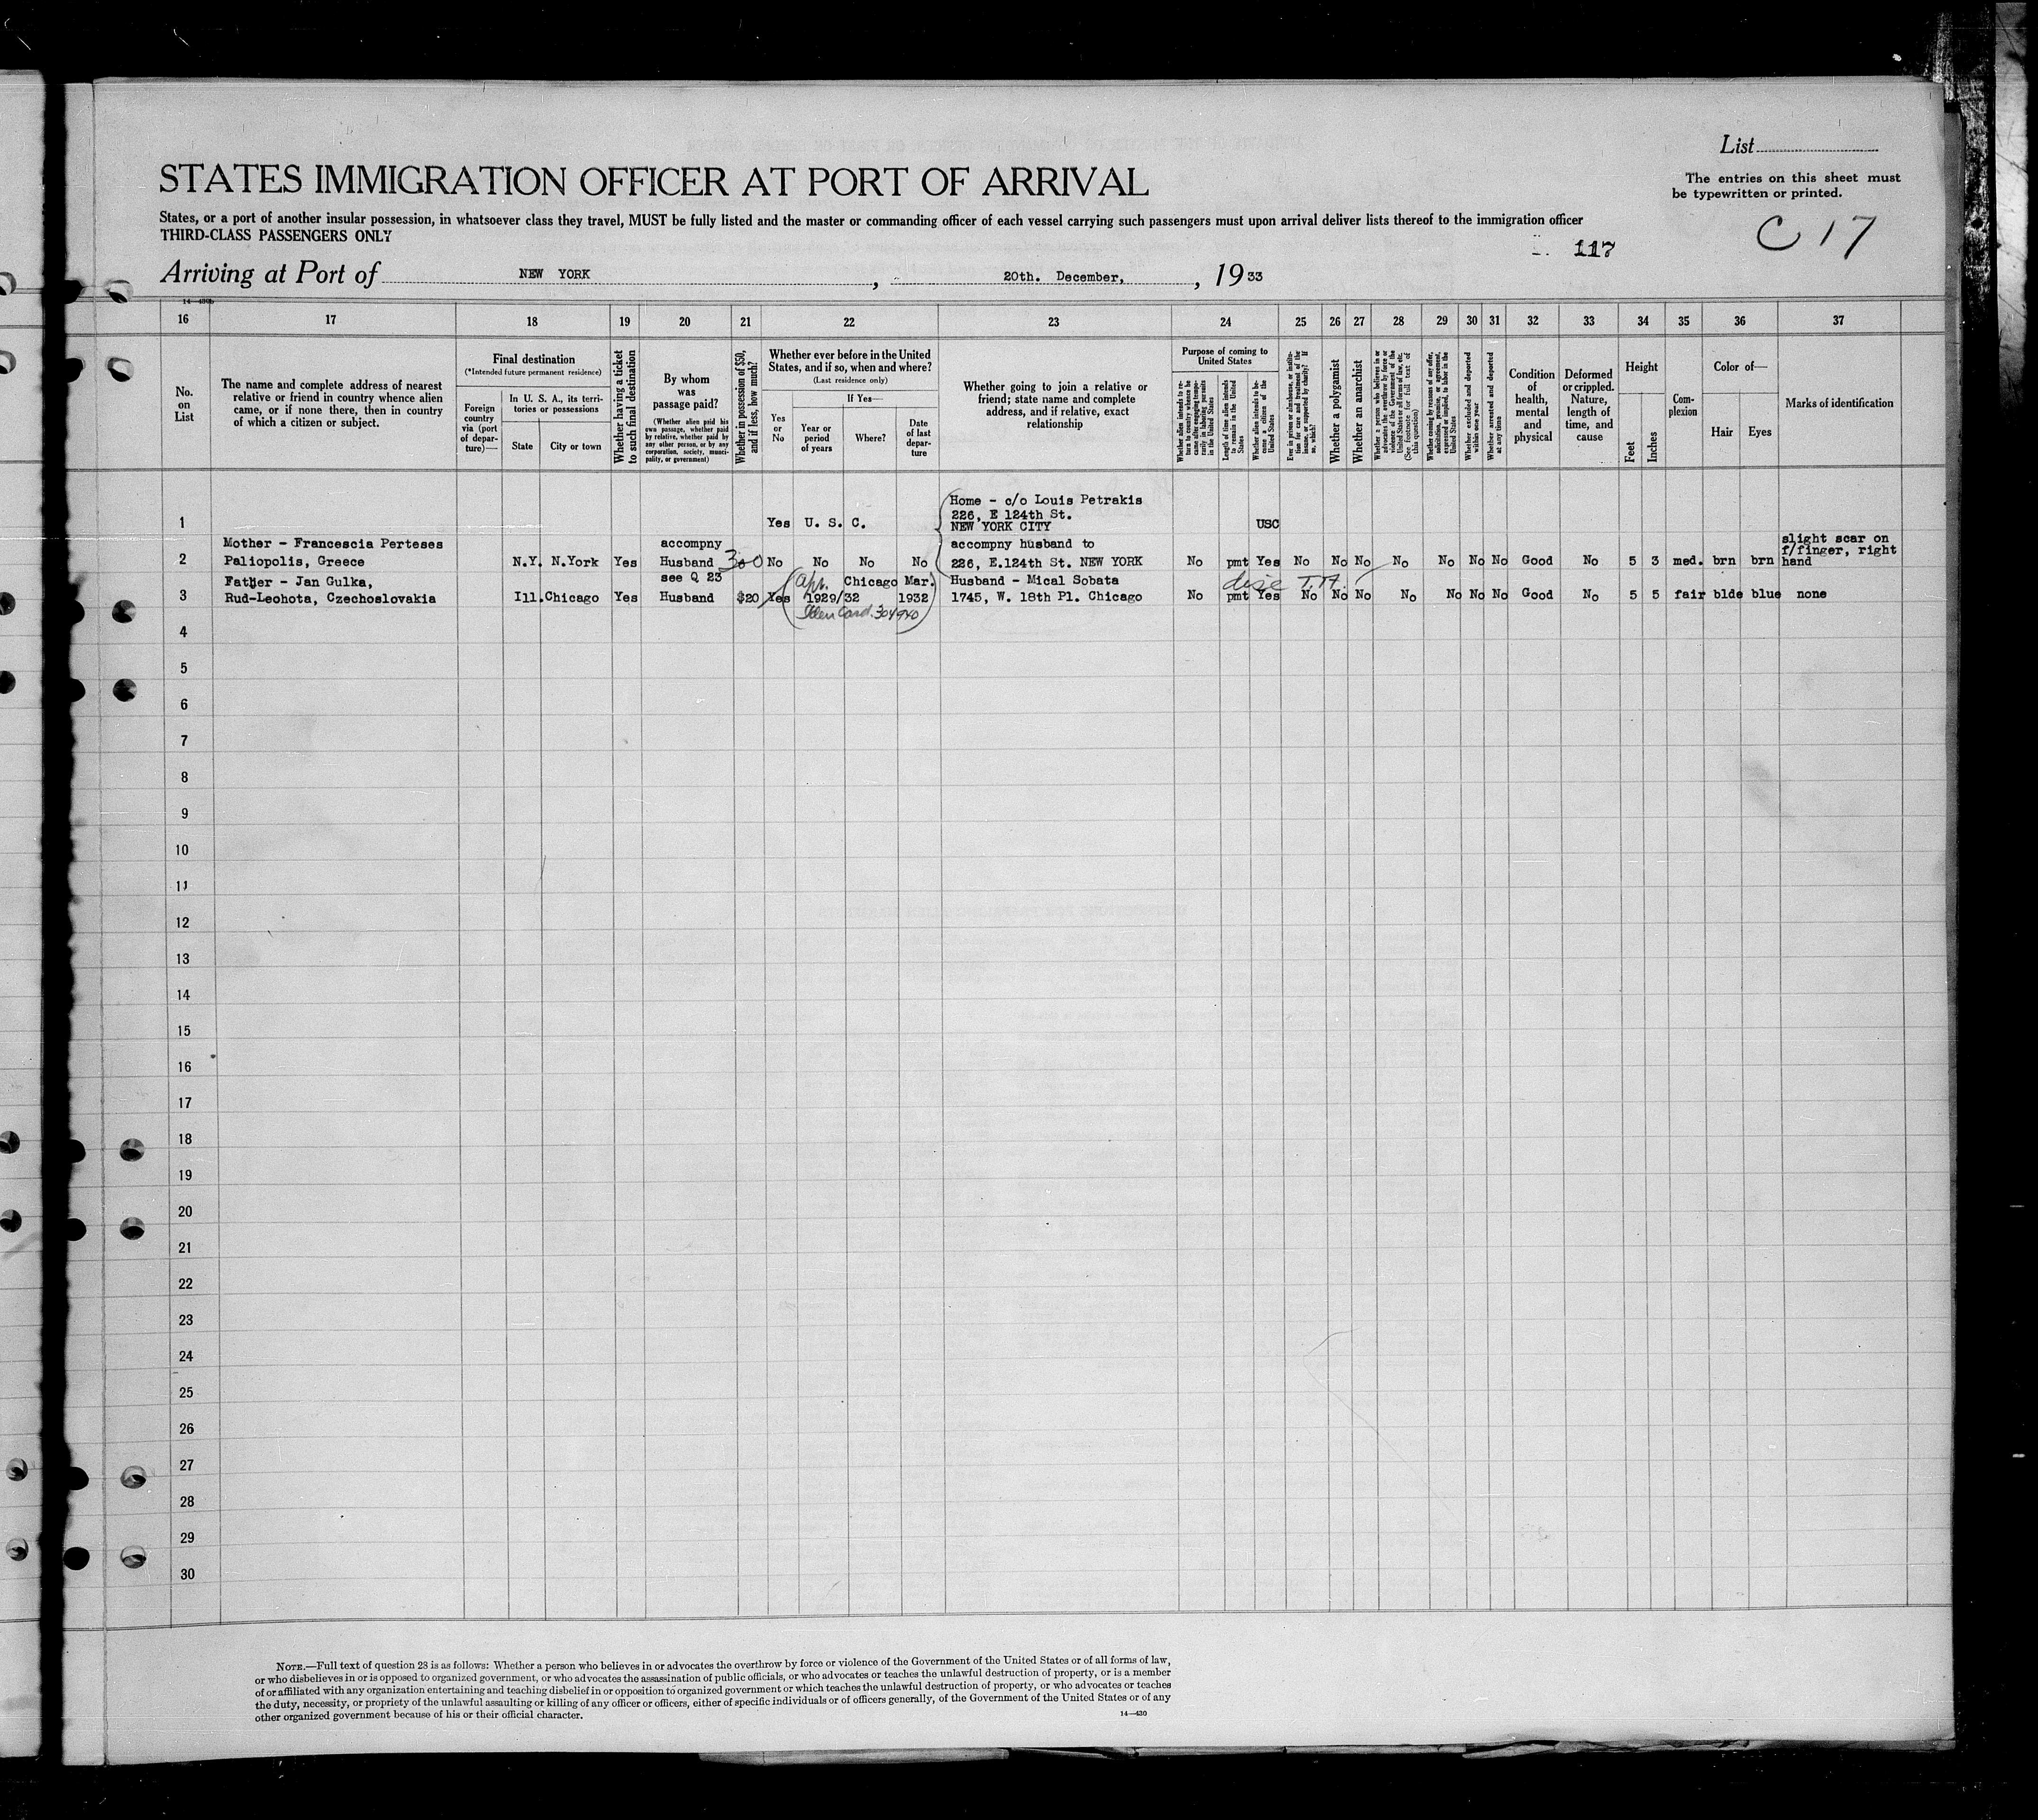 List
STATES IMMIGRATION OFFICER AT PORT OF ARRIVAL
The entries on this sheet must
be typewritten or printed.
States, or a port of another insular possession, in whatsoever class they travel, MUST be fully listed and the master or commanding officer of each vessel carrying such passengers must upon arrival deliver lists thereof to the immigration officer
THIRD-CLASS PASSENGERS ONLY
C 17
117
Arriving at Port of NEW YORK, 20th. December, 1933
14—430b
16 17 18 19 20 21 22 23 24 25 26 27 28 29 30 31 32 33 34 35 36 37
No.
on
List
The name and complete address of nearest
relative or friend in country whence alien
came, or if none there, then in country
of which a citizen or subject.
Final destination
(*Intended future permanent residence)
Foreign
country
via (port
of depar-
ture)—
In U. S. A., its terri-
tories or possessions
State
City or town
Whether having a ticket
to such final destination
By whom
was
passage paid?
(Whether alien paid his
own passage, whether paid
by relative, whether paid by
any other person, or by any
corporation, society, munici-
pality, or government)
Whether in possession of $50,
and if less, how much?
Whether ever before in the United
States, and if so, when and where?
(Last residence only)
Yes
or
No
If Yes—
Year or
period
of years
Where?
Date
of last
depar-
ture
Whether going to join a relative or
friend; state name and complete
address, and if relative, exact
relationship
Purpose of coming to
United States
Whether alien intends to re-
turn to country whence he
came after engaging tempo-
rarily in laboring pursuits
in the United States
Length of time alien intends
to remain in the United
States
Whether alien intends to be-
come a citizen of the
United States
Ever in prison or almshouse, or institu-
tion for care and treatment of the
insane, or supported by charity? If
so, which?
Whether a polygamist
Whether an anarchist
Whether a person who believes in or
advocates the overthrow by force or
violence of the Government of the
United States or all forms of law, etc.
(See footnote for full text of
this question)
Whether coming by reason of any offer,
solicitation, promise, or agreement,
expressed or implied, to labor in the
United States
Whether excluded and deported
within one year
Whether arrested and deported
at any time
Condition
of
health,
mental
and
physical
Deformed
or crippled.
Nature,
length of
time, and
cause
Height
Feet
Inches
Com-
plexion
Color of—
Hair
Eyes
Marks of identification
1 Yes U. S. C. Home - c/o Louis Petrakis
226, E 124th St.
NEW YORK CITY USC
2 Mother - Francescia Perteses
Paliopolis, Greece N.Y. N.York Yes accompny
Husband
see Q 23 300 No No No No accompny husband to
226, E.124th St. NEW YORK No pmt Yes No No No No No No No Good No 5 3 med. brn brn slight scar on
f/finger, right
hand
3 Father - Jan Gulka,
Rud-Leohota, Czechoslovakia Ill. Chicago Yes Husband $20 Yes app. 1929/32 Chicago Mar.
1932 Husband - Mical Sobata
1745, W. 18th Pl. Chicago No pmt Yes No No No No No No No Good No 5 5 fair blde blue none
Iden Card. 304940
4
5
6
7
8
9
10
11
12
13
14
15
16
17
18
19
20
21
22
23
24
25
26
27
28
29
30
NOTE.—Full text of question 28 is as follows: Whether a person who believes in or advocates the overthrow by force or violence of the Government of the United States or of all forms of law,
or who disbelieves in or is opposed to organized government, or who advocates the assassination of public officials, or who advocates or teaches the unlawful destruction of property, or is a member
of or affiliated with any organization entertaining and teaching disbelief in or opposition to organized government or which teaches the unlawful destruction of property, or who advocates or teaches
the duty, necessity, or propriety of the unlawful assaulting or killing of any officer or officers, either of specific individuals or of officers generally, of the Government of the United States or of any
other organized government because of his or their official character.
14—430